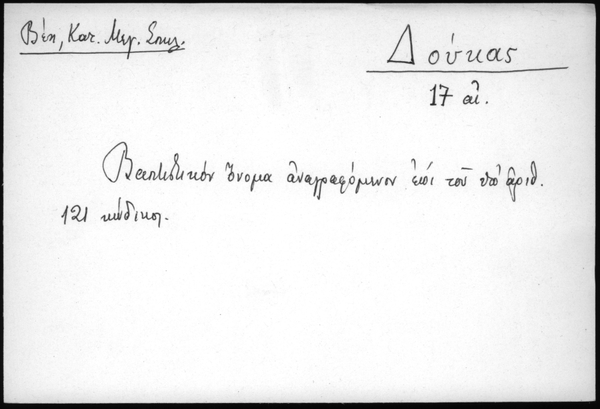 Βέη, Κατ. Μεγ. Σπηλ.
Δούκας
17 αἰ.
Βαπτιστικόν ὄνομα ἀναγραφόμενον ἐπί τοῦ ὑπ' ἀριθ.
121 κώδικος.